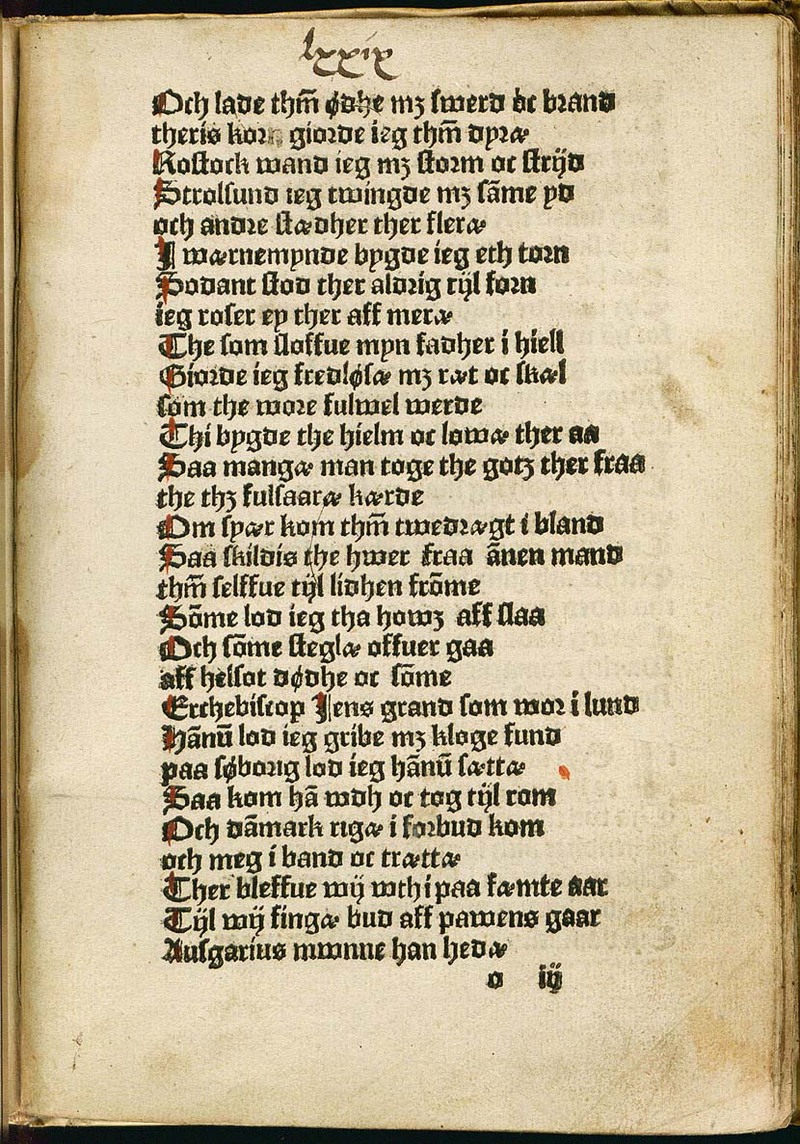 lxxix
Och lade thm̄ ødhe mʒ swerd oc brand
theris korn giorde ieg thm̄ dyræ
Rostock wand ieg mʒ storm oc strijd
Strolsund ieg twingde mʒ sāme yd
och andre stædher ther flere
I wærnemynde bygde ieg eth torn
Sodant stod ther aldrig tijl forn
ieg roser ey ther aff meræ
The som sloffue myn fadher i hiell
Giorde ieg fredløsæ mʒ ræt oc skæl
som the wore fulwel werde
Thi bygde the hielm oc lowæ ther aa
Saa mangæ man toge the gotʒ ther fraa
the thʒ fulsaaræ kærde
Om syær kom thm̄ twedrægt i bland
Saa skildis the hwer fraa ānen mand
thm̄ selffue tijl lidhen frōme
Sōme lod ieg tha howʒ aff slaa
Och sōme steglæ offuer gaa
aff helsot dødhe oc sōme
Erchebiscop Jens grand som wor i lund
Hānū lod ieg gribe mʒ kloge fund
paa søborig lod ieg hānū sættæ
Saa kom hā wdh oc tog tijl rom
Och dāmark rigæ i forbud kom
och meg i band oc trættæ
Ther bleffue wij wthi paa fæmte aar
Tijl wij fingæ bud aff pawens gaar
Ausgarius mwnne han hedæ
o iij